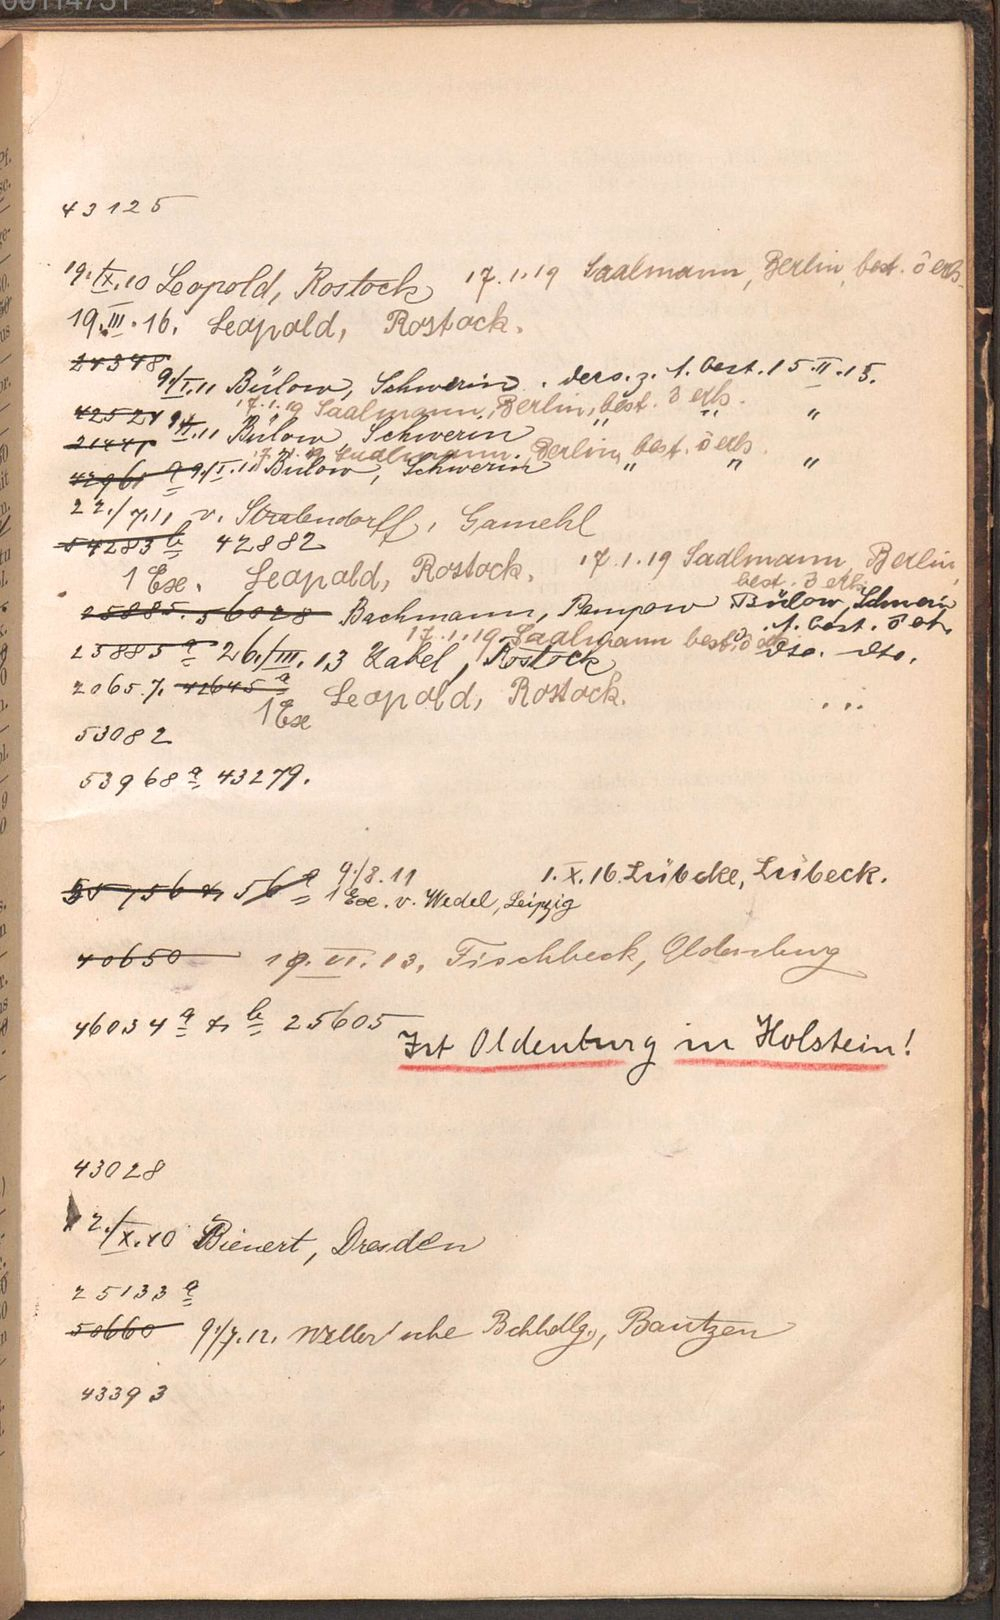 00114751
43125
19./IX.10 Leopold, Rostock 17.1.19 Saalmann, Berlin, best. o erh.
19.III.16. Leopold, Rostock.
24348
9/I.11 Bülow, Schwerin. ders. z. 1. best. 15.II.15.
17.1.19 Saalmann, Berlin, best. o erh.
42524 9/I.11 Bülow, Schwerin " " "
17.1.19 Saalmann, Berlin, best. o erh.
42961 a 9/I.11 Bülow, Schwerin " " "
22./7.11 v. Stralendorff, Gamehl
54283 b 42882
1 Ex. Leopold, Rostock. 17.1.19 Saalmann, Berlin,
best. o erh.
25885. 56028 Bachmann, Pampow Bülow, Schwerin
1. best. o eh.
17.1.19. Saalmann best. o erh.
25885 a 26./III.13 Kabel, Rostock dto. dto.
20657. 42645 a Leopold, Rostock.
1 Ex
53082
53968 a 43279.
9./8.11 1.X.16. Lübcke, Lübeck.
56 a 1 Ex. v. Wedel, Leipzig
40650 19.VI.13. Fischbeck, Oldenburg
46034 a & b 25605
Ist Oldenburg in Holstein!
43028
2./X.10 Bienert, Dresden
25133 a
50660 9./7.12. Weller'sche Bchhdlg., Bautzen
43393